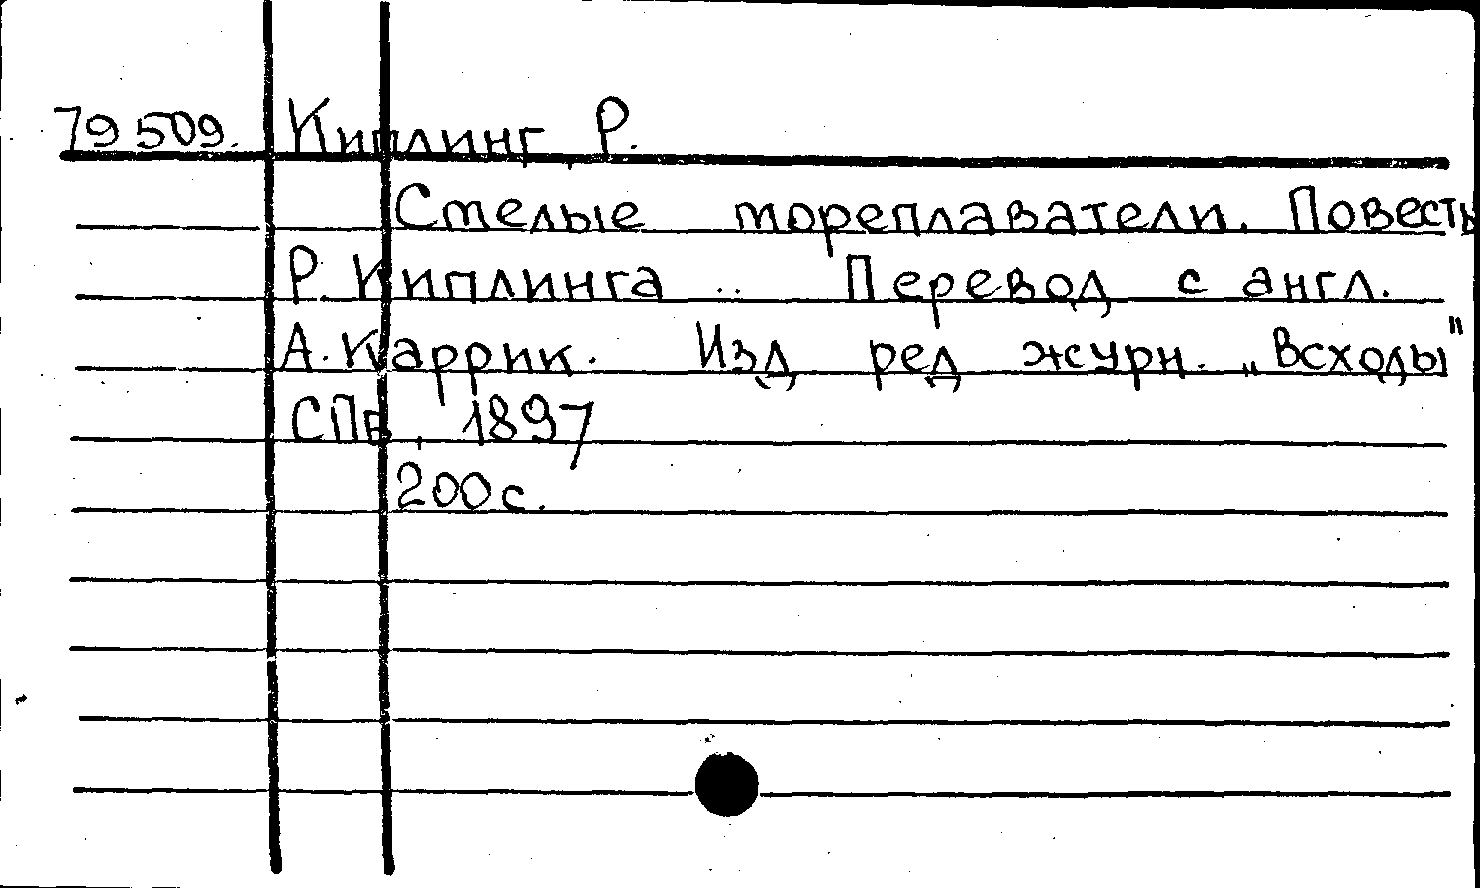 79509. Киплинг, Р.
Смелые мореплаватели. Повесть
Р. Киплинга .. Перевод с англ.
А. Каррик. Изд ред журн. „Всходы"
СПб, 1897
200 с.